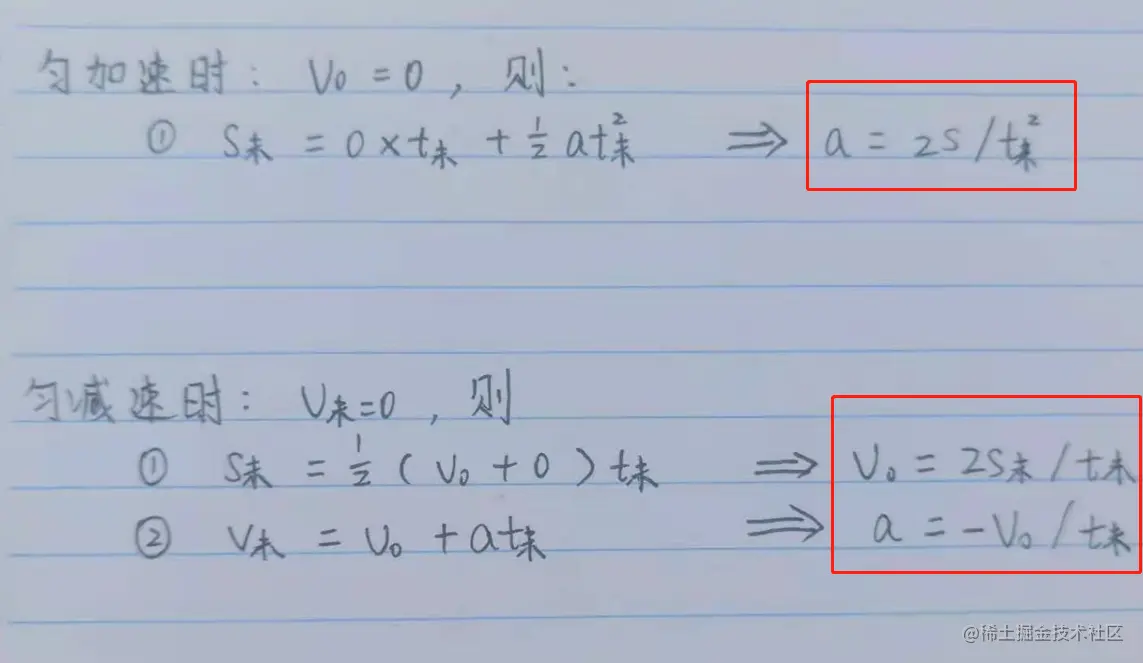 匀加速时: V₀ = 0 , 则:
① S末 = 0 × t末 + ½ at末² ⇒ a = 2S / t末²
匀减速时: V末=0 , 则
① S末 = ½ ( V₀ + 0 ) t末 ⇒ V₀ = 2S末 / t末
② V末 = V₀ + at末 ⇒ a = -V₀ / t末
@稀土掘金技术社区